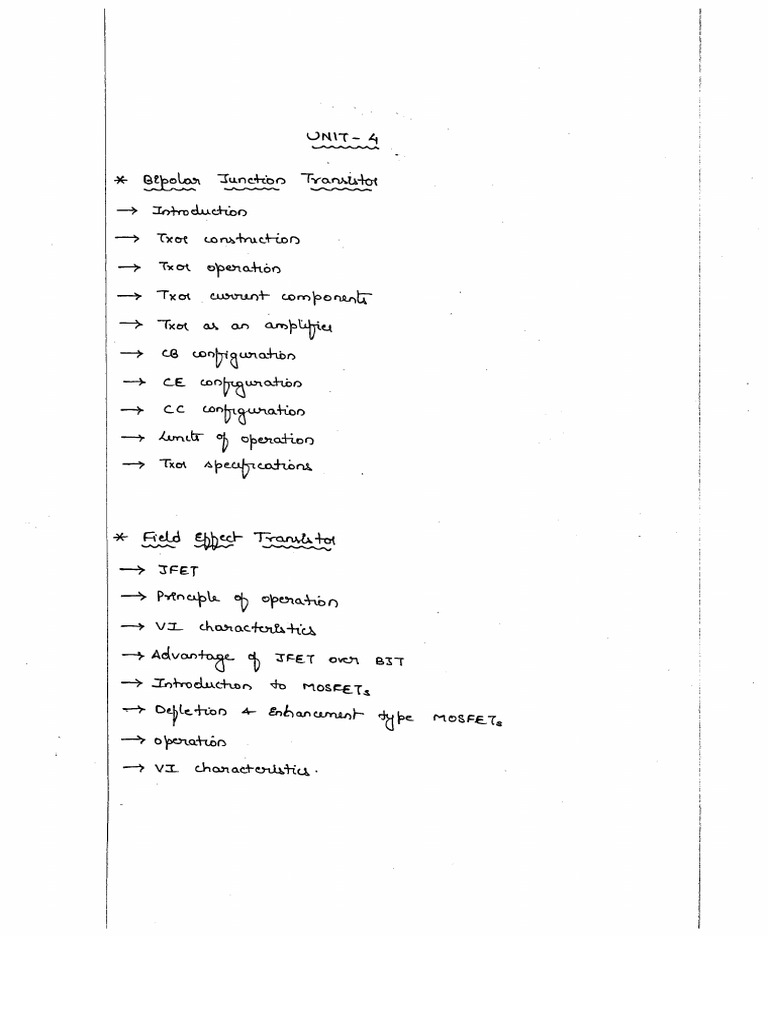 UNIT - 4
* Bipolar Junction Transistor
→ Introduction
→ Txor construction
→ Txor operation
→ Txor current components
→ Txor as an amplifier
→ CB configuration
→ CE configuration
→ CC configuration
→ Limits of operation
→ Txor specifications
* Field Effect Transistor
→ JFET
→ Principle of operation
→ VI characteristics
→ Advantage of JFET over BJT
→ Introduction to MOSFETs
→ Depletion & Enhancement type MOSFETs
→ operation
→ VI characteristics.